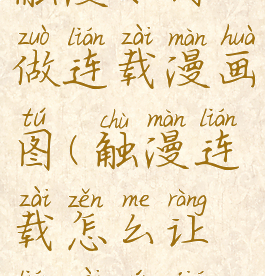 zuò lián zài màn huà
做连载漫画
tú chù màn lián
图(触漫连
zài zěn me ràng
载怎么让